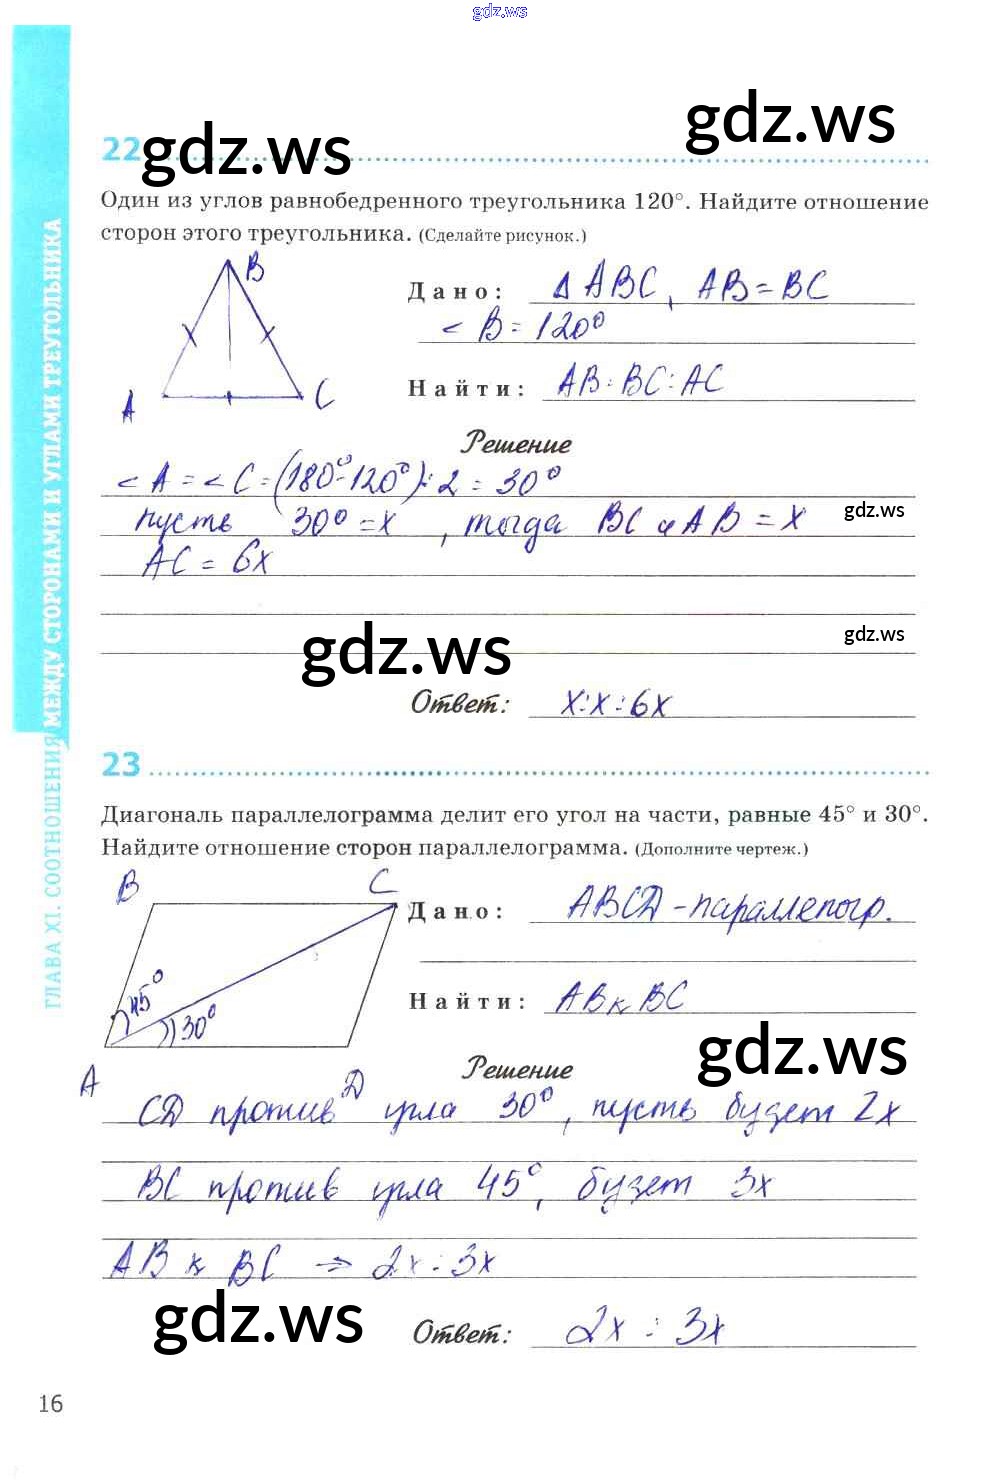 gdz.ws
gdz.ws
22 gdz.ws
Один из углов равнобедренного треугольника 120°. Найдите отношение
сторон этого треугольника. (Сделайте рисунок.)
B
A
C
Дано: Δ ABC, AB = BC
< B = 120°
Найти: AB : BC : AC
Решение
< A = < C = (180° - 120°) : 2 = 30°
пусть 30° = x, тогда BC и AB = x
gdz.ws
AC = 6x
gdz.ws
gdz.ws
Ответ: x : x : 6x
23
Диагональ параллелограмма делит его угол на части, равные 45° и 30°.
Найдите отношение сторон параллелограмма. (Дополните чертеж.)
B
C
45°
30°
A
D
Дано: ABCD - параллелогр.
Найти: AB к BC
gdz.ws
Решение
CD против угла 30°, пусть будет 2x
BC против угла 45°, будет 3x
AB к BC ⇒ 2x : 3x
gdz.ws
Ответ: 2x : 3x
16
ГЛАВА XI. СООТНОШЕНИЯ МЕЖДУ СТОРОНАМИ И УГЛАМИ ТРЕУГОЛЬНИКА